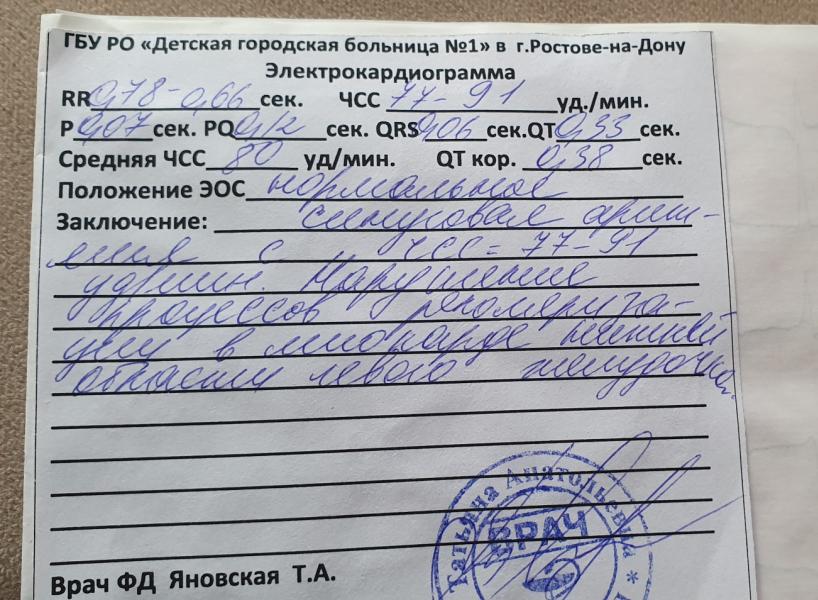 ГБУ РО «Детская городская больница №1» в г.Ростове-на-Дону
Электрокардиограмма
RR 0,78-0,66 сек. ЧСС 77-91 уд./мин.
P 0,07 сек. PQ 0,12 сек. QRS 0,06 сек. QT 0,33 сек.
Средняя ЧСС 80 уд/мин. QT кор. 0,38 сек.
Положение ЭОС нормальное
Заключение: синусовая арит-
мия с ЧСС= 77-91
уд/мин. Нарушение
процессов реполяриза-
ции в миокарде нижней
области левого желудочка.
Татьяна Анатольевна *
ВРАЧ
Врач ФД Яновская Т.А.